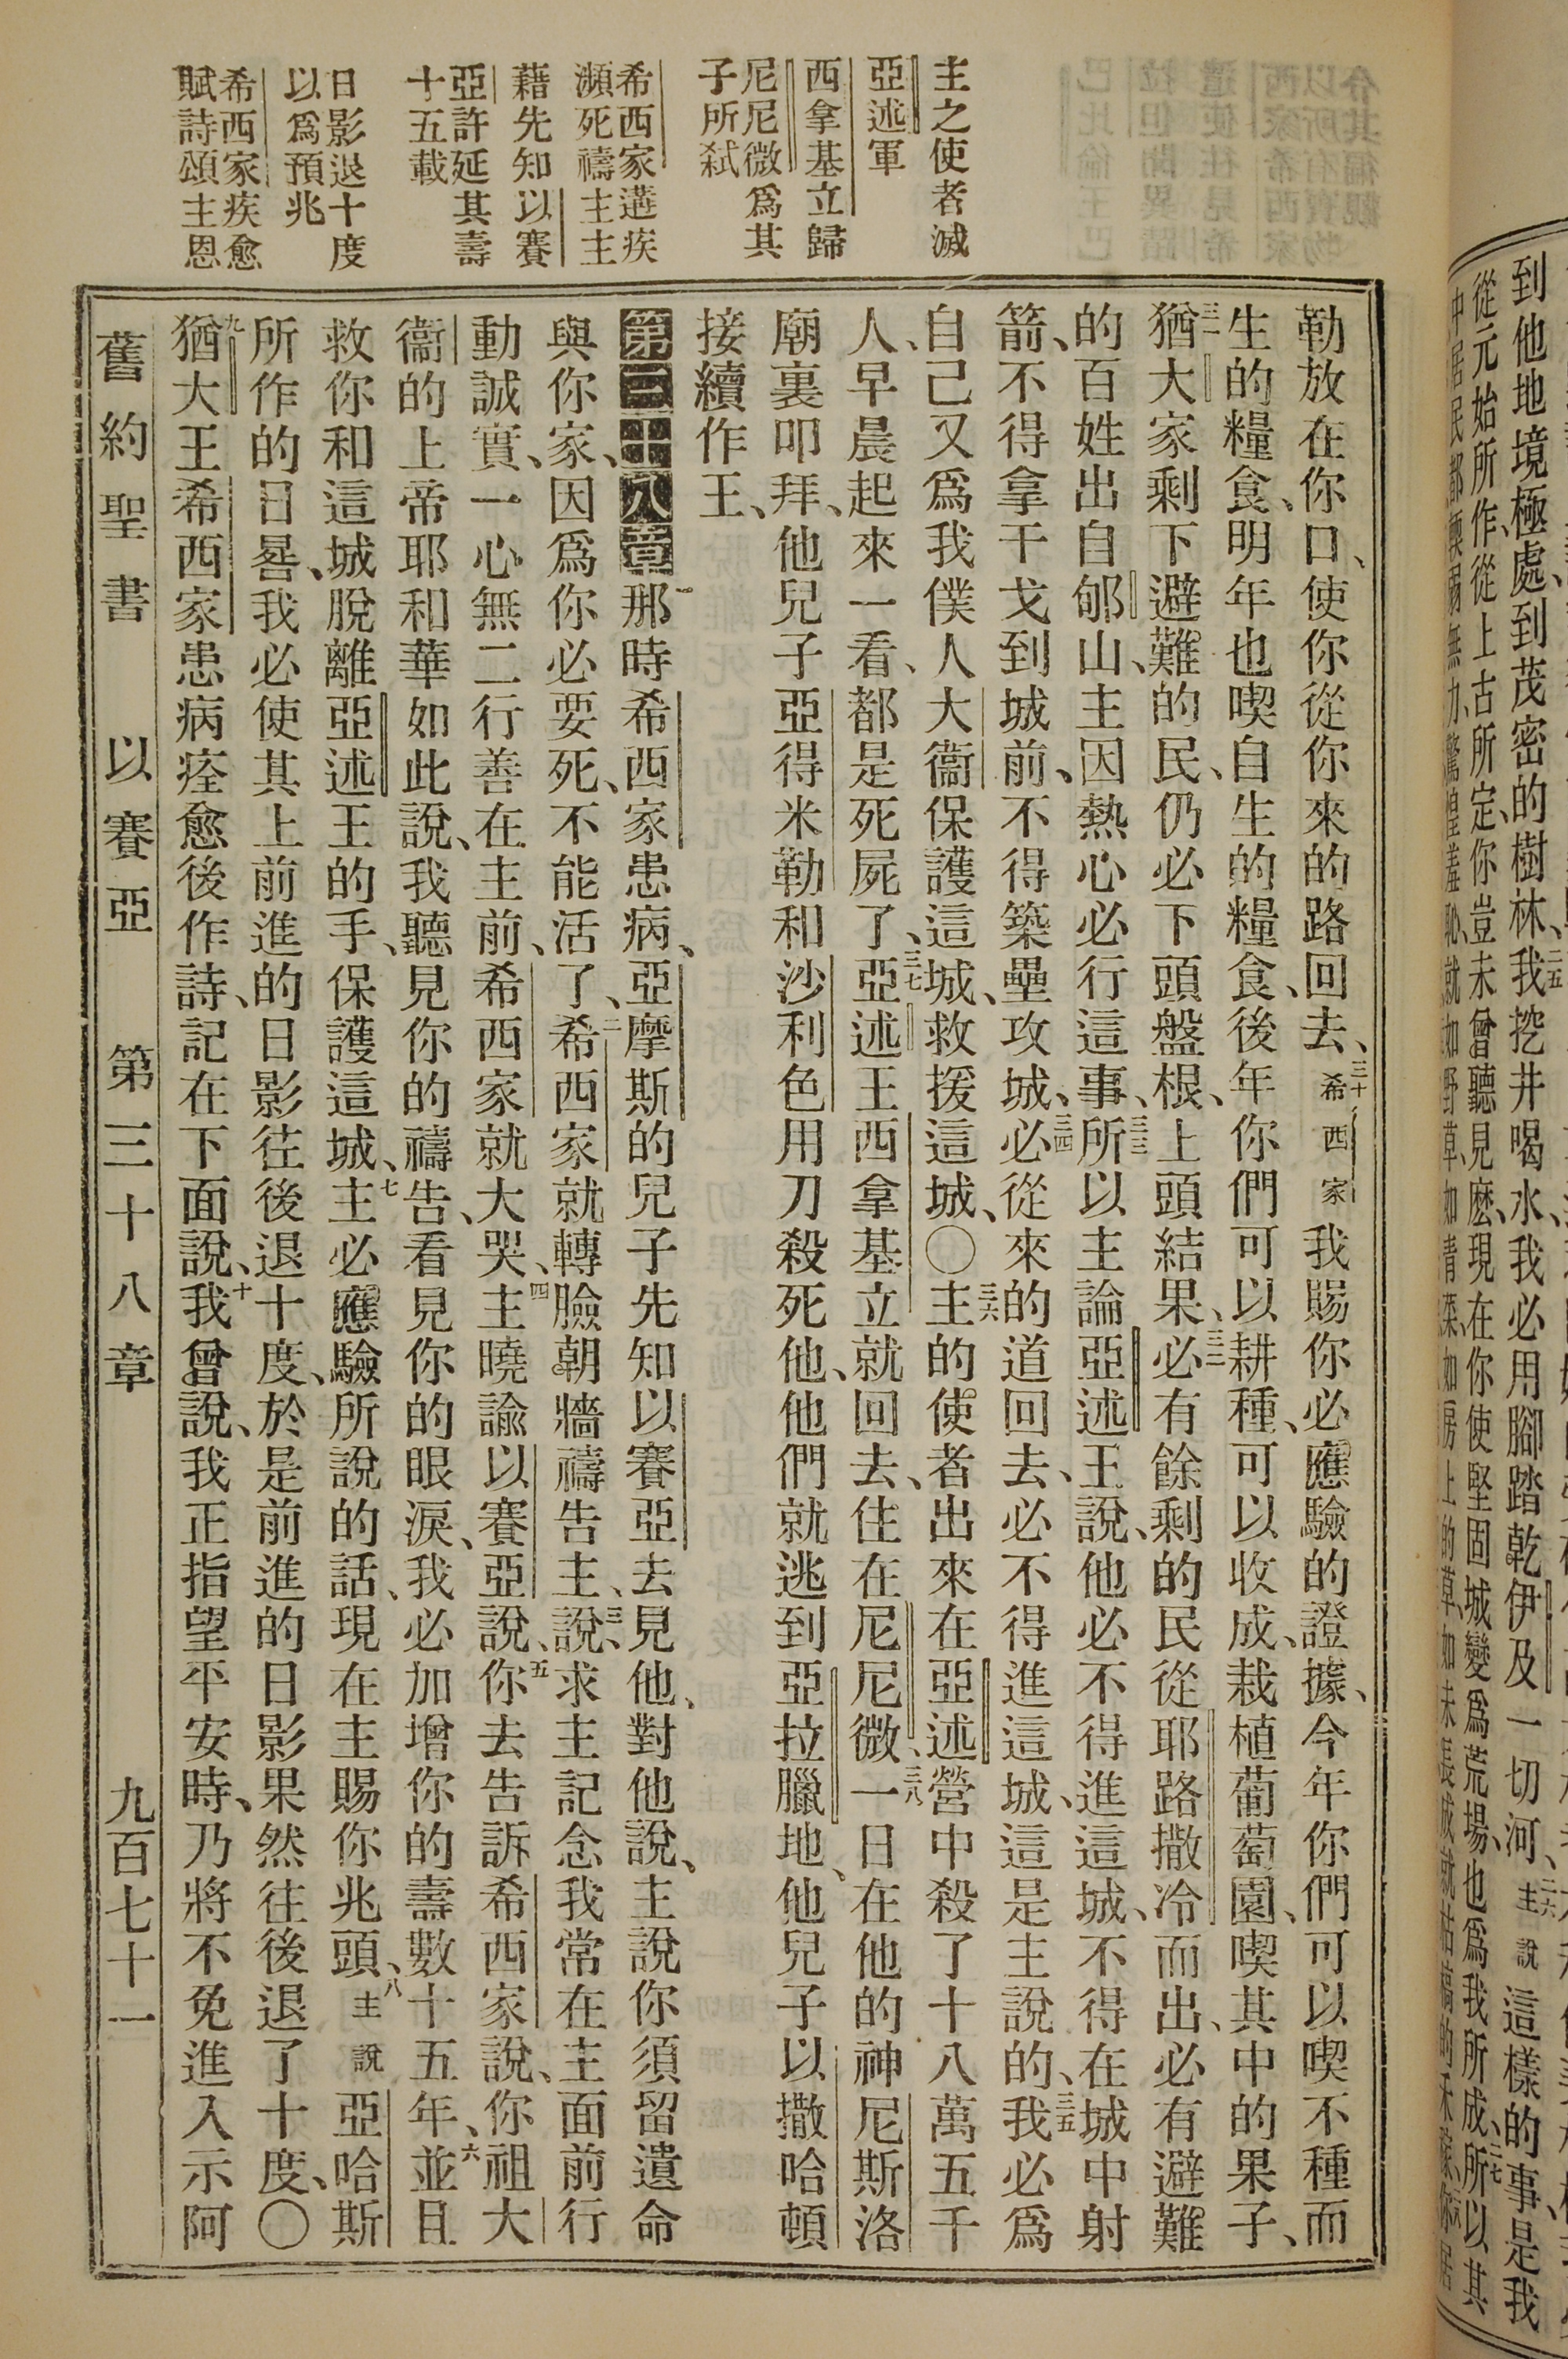 主之使者滅
亞述軍
西拿基立歸
尼尼微爲其
子所弒
希西家遘疾
瀕死禱主主
藉先知以賽
亞許延其壽
十五載
日影退十度
以爲預兆
希西家疾愈
賦詩頌主恩
勒放在你口、使你從你來的路回去、三十希西家我賜你必應驗的證據、今年你們可以喫不種而
生的糧食、明年也喫自生的糧食、後年你們可以耕種、可以收成、栽植葡萄園、喫其中的果子、
三一猶大家剩下避難的民、仍必下頭盤根、上頭結果、三二必有餘剩的民從耶路撒冷而出、必有避難
的百姓出自郇山、主因熱心必行這事、三三所以主論亞述王說、他必不得進這城、不得在城中射
箭、不得拿干戈到城前、不得築壘攻城、三四必從來的道回去、必不得進這城、這是主說的、三五我必爲
自己又爲我僕人大衞保護這城、救援這城、〇三六主的使者出來在亞述營中殺了十八萬五千
人、早晨起來一看、都是死屍了、三七亞述王西拿基立就回去、住在尼尼微、三八一日在他的神尼斯洛
廟裏叩拜、他兒子亞得米勒和沙利色用刀殺死他、他們就逃到亞拉臘地、他兒子以撒哈頓
接續作王、
第三十八章一那時希西家患病、亞摩斯的兒子先知以賽亞去見他、對他說、主說你須留遺命
與你家、因爲你必要死、不能活了、二希西家就轉臉朝牆禱告主、三說、求主記念我常在主面前行
動誠實、一心無二行善在主前、希西家就大哭、四主曉諭以賽亞說、五你去告訴希西家說、你祖大
衞的上帝耶和華如此說、我聽見你的禱告、看見你的眼淚、我必加增你的壽數十五年、六並且
救你和這城脫離亞述王的手、保護這城、七主必應驗所說的話、現在主賜你兆頭、八主說亞哈斯
所作的日晷、我必使其上前進的日影往後退十度、於是前進的日影果然往後退了十度、〇
九猶大王希西家患病痊愈後作詩、記在下面說、十我曾說、我正指望平安時、乃將不免進入示阿
舊約聖書　以賽亞　第三十八章　九百七十一
到他地境極處、到茂密的樹林、三五我挖井喝水、我必用腳踏乾伊及一切河、三六主說這樣的事是我
從元始所作、從上古所定、你豈未曾聽見麽、現在你使堅固城變爲荒場、也爲我所成、三七所以其